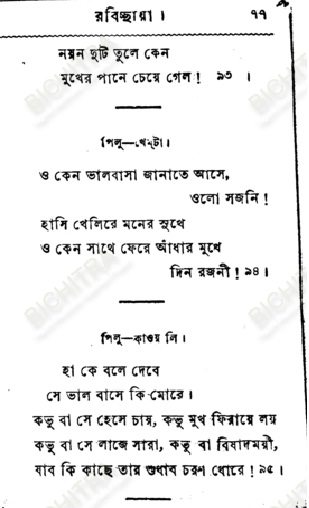 রবিচ্ছায়া। ৭৭
নয়ন দুটি তুলে কেন
মুখের পানে চেয়ে গেল! ৯৩ ।
পিলু—খেম্‌টা।
ও কেন ভালবাসা জানাতে আসে,
ওলো সজনি!
হাসি খেলিরে মনের সুখে
ও কেন সাথে ফেরে আঁধার মুখে
দিন রজনী! ৯৪।
পিলু—কাওয়ালি।
হা কে বলে দেবে
সে ভাল বাসে কি মোরে।
কভু বা সে হেসে চায়, কভু মুখ ফিরায়ে লয়
কভু বা সে লাজে সারা, কভু বা বিষাদময়ী,
যাব কি কাছে তার শুধাব চরণ ধোরে! ৯৫।
BICHITRA
BICHITRA
BICHITRA
BICHITRA